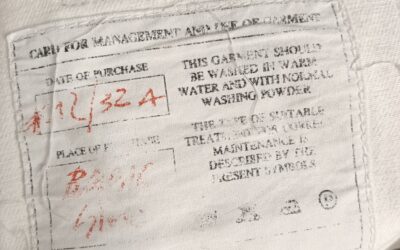 CARD FOR MANAGEMENT AND USE OF GARMENT
DATE OF PURCHASE
THIS GARMENT SHOULD
BE WASHED IN WARM
WATER AND WITH NORMAL
WASHING POWDER
THE TYPE OF SUITABLE
MAINTENANCE IS
DESCRIBED BY THE
PRESENT SYMBOLS
PLACE OF